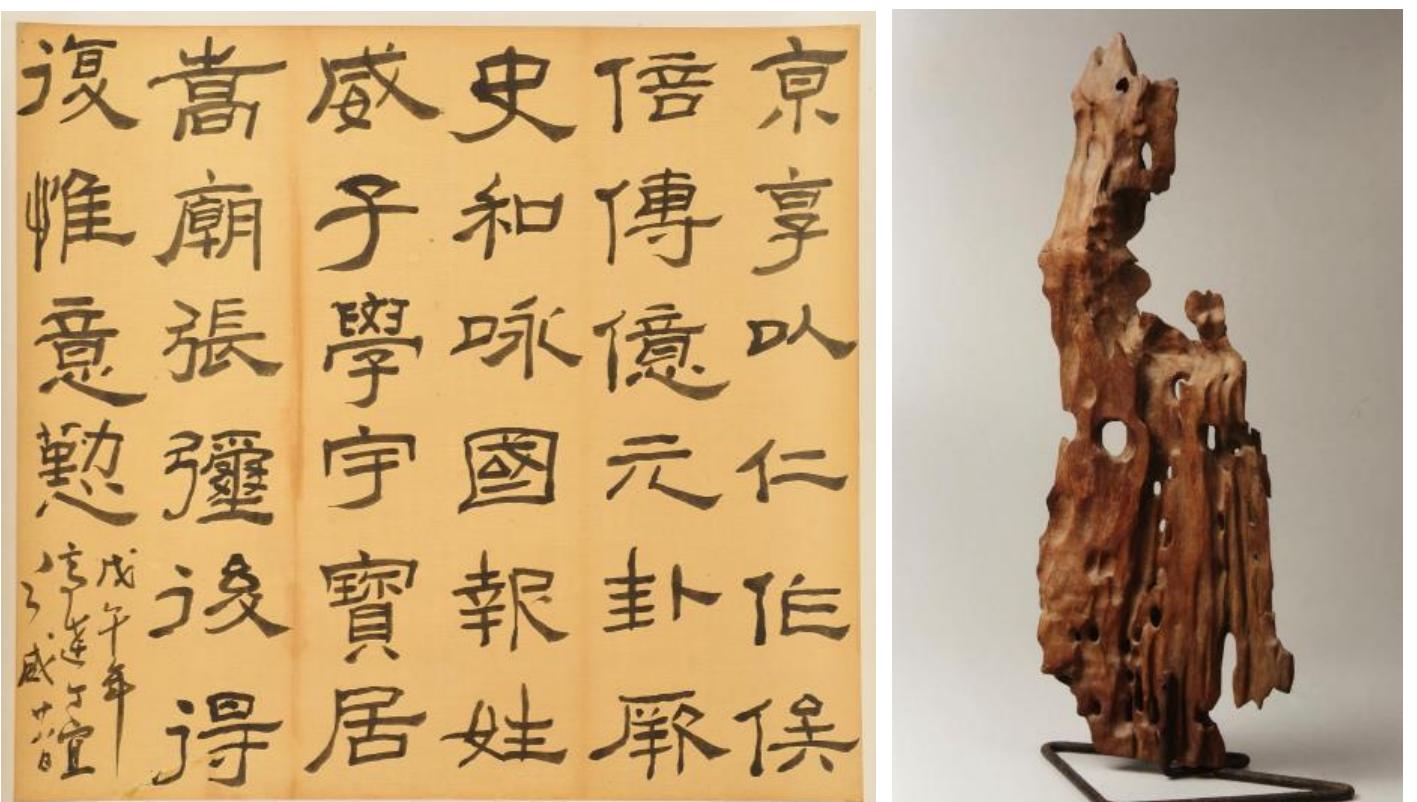 亰享以仁作侯
倍傳億元卦厥
史和咏國報姓
威子學宇寶居
嵩廟張彌後得
復惟意懃
戊午年